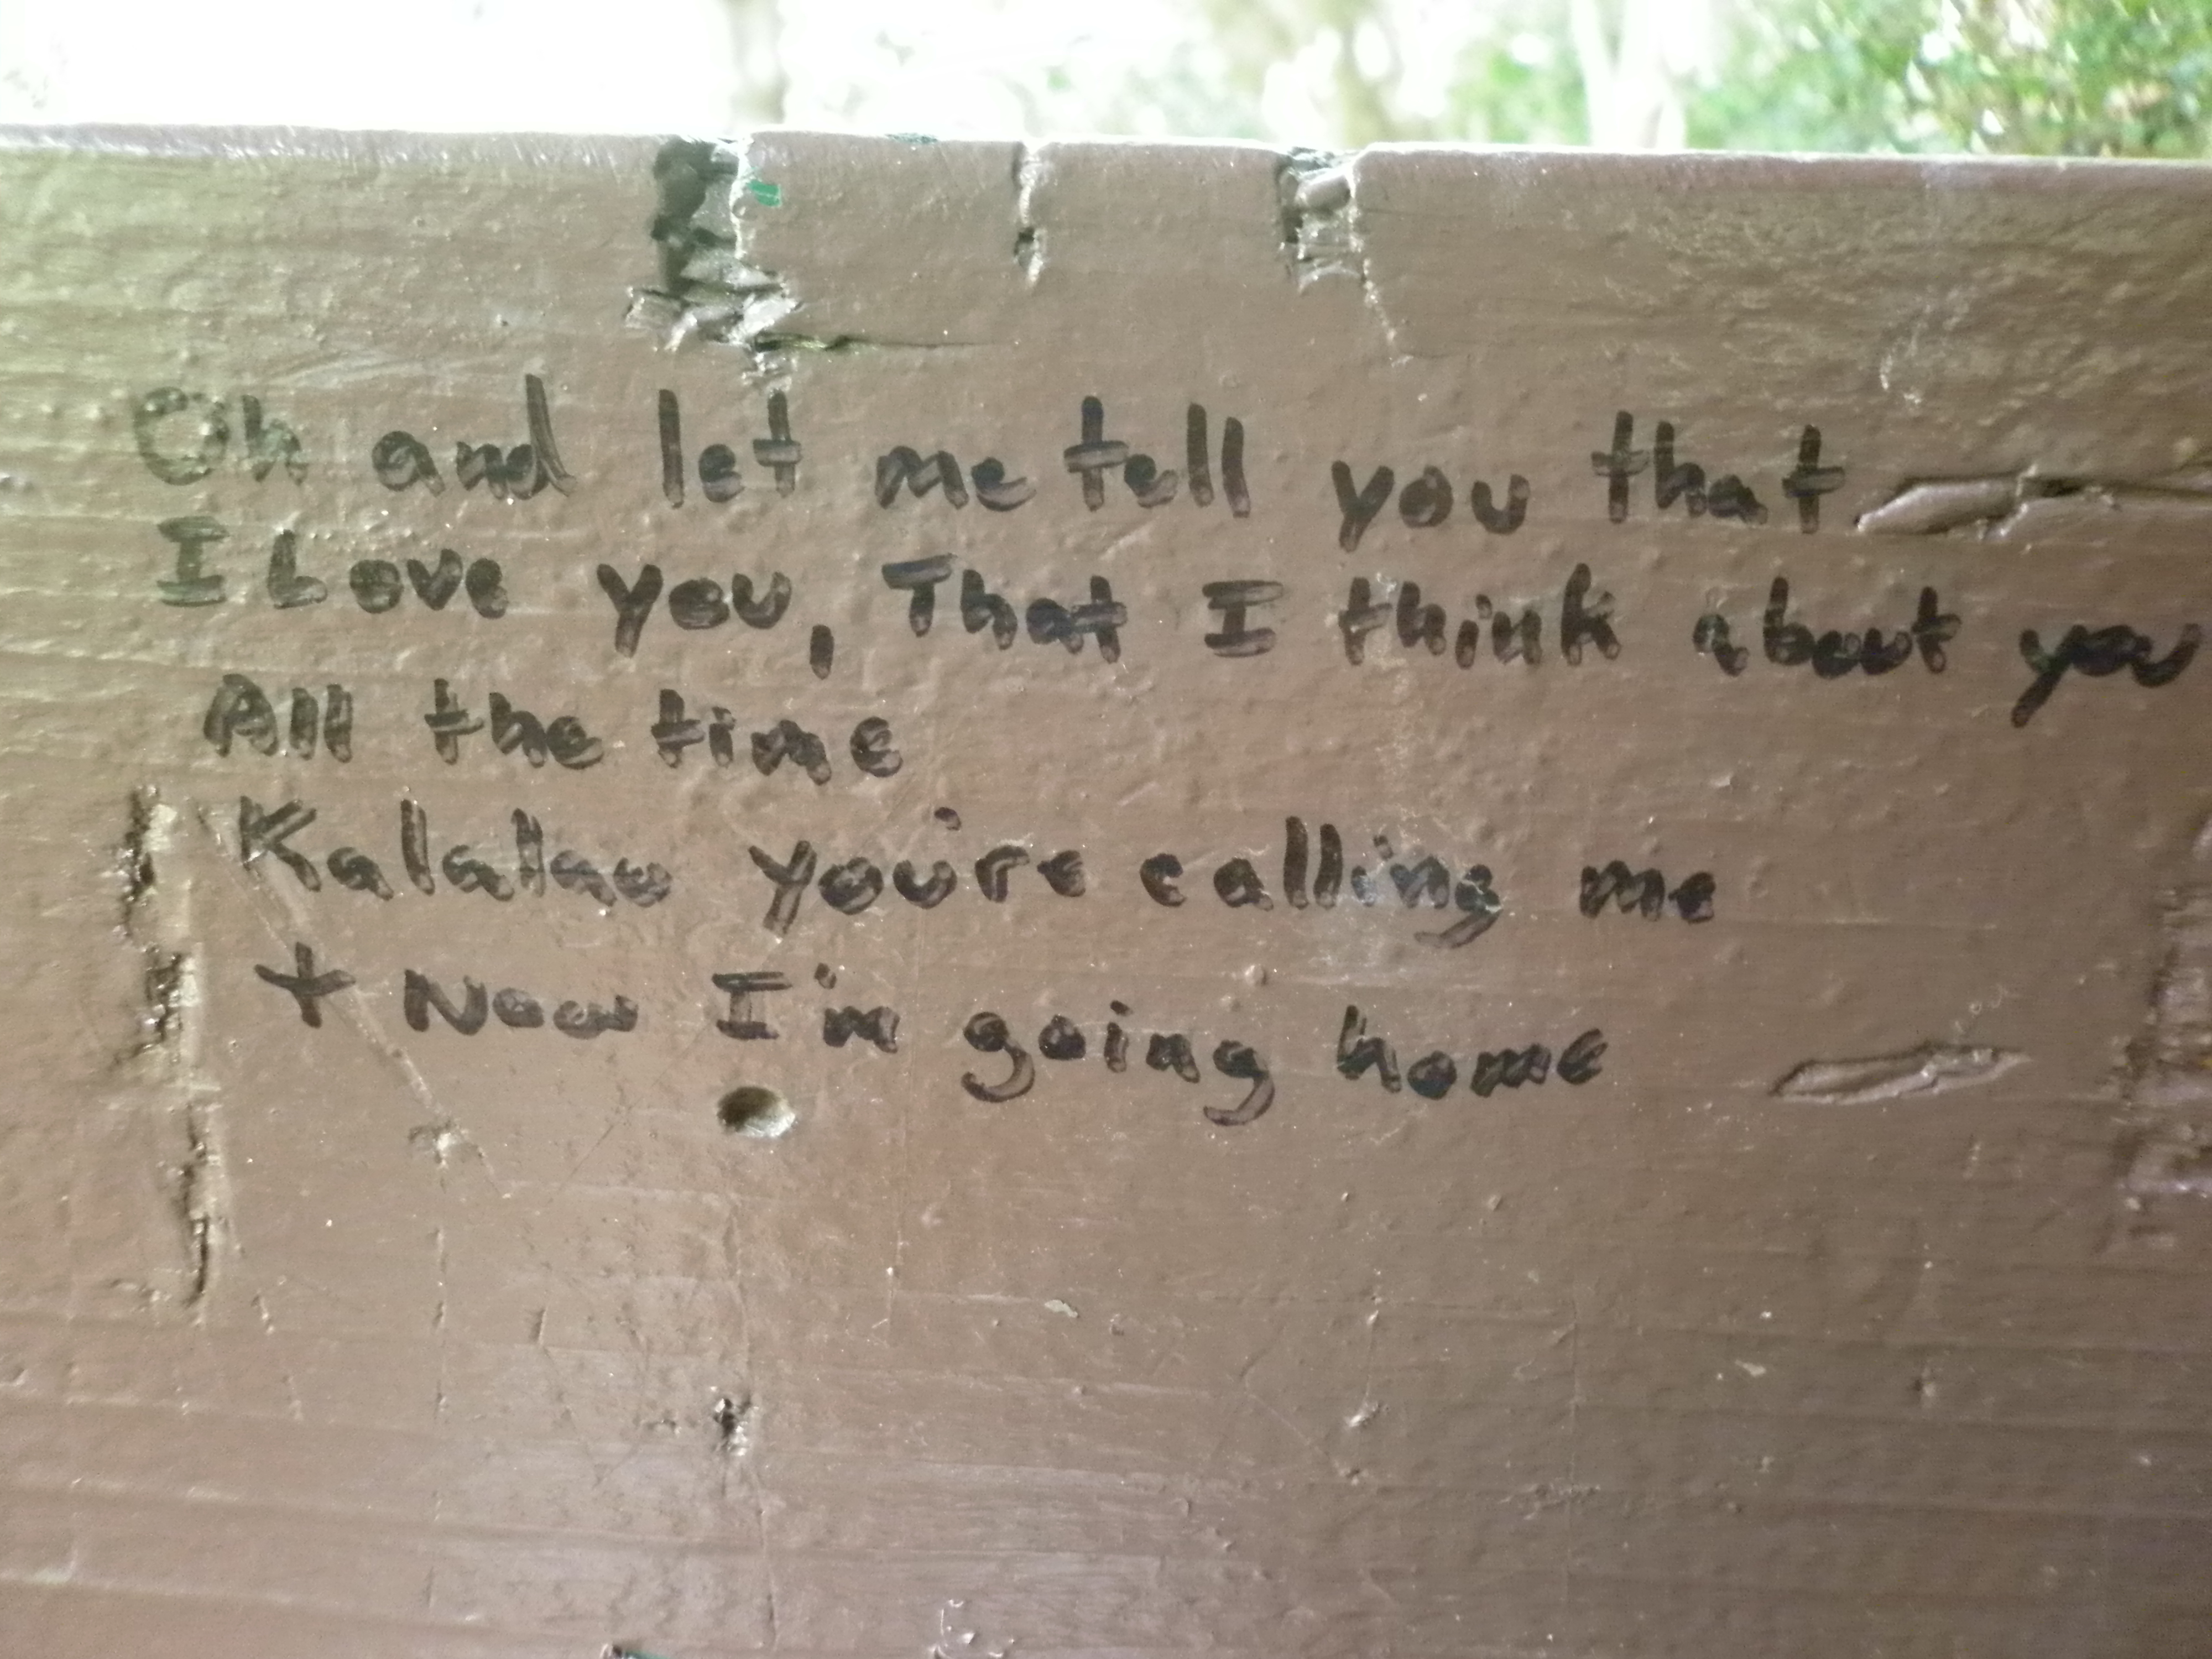 Oh and let me tell you that
I Love you, That I think about you
All the time
Kalalau you're calling me
+ Now I'm going home